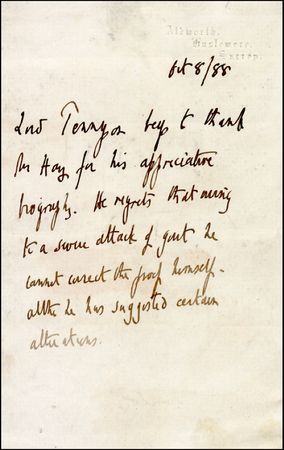 Aldworth,
Haslemere,
Surrey.
Oct 8/88
Lord Tennyson begs to thank
Mr Hay for his appreciative
biography. He regrets that owing
to a severe attack of gout he
cannot correct the proof himself-
altho he has suggested certain
alterations.